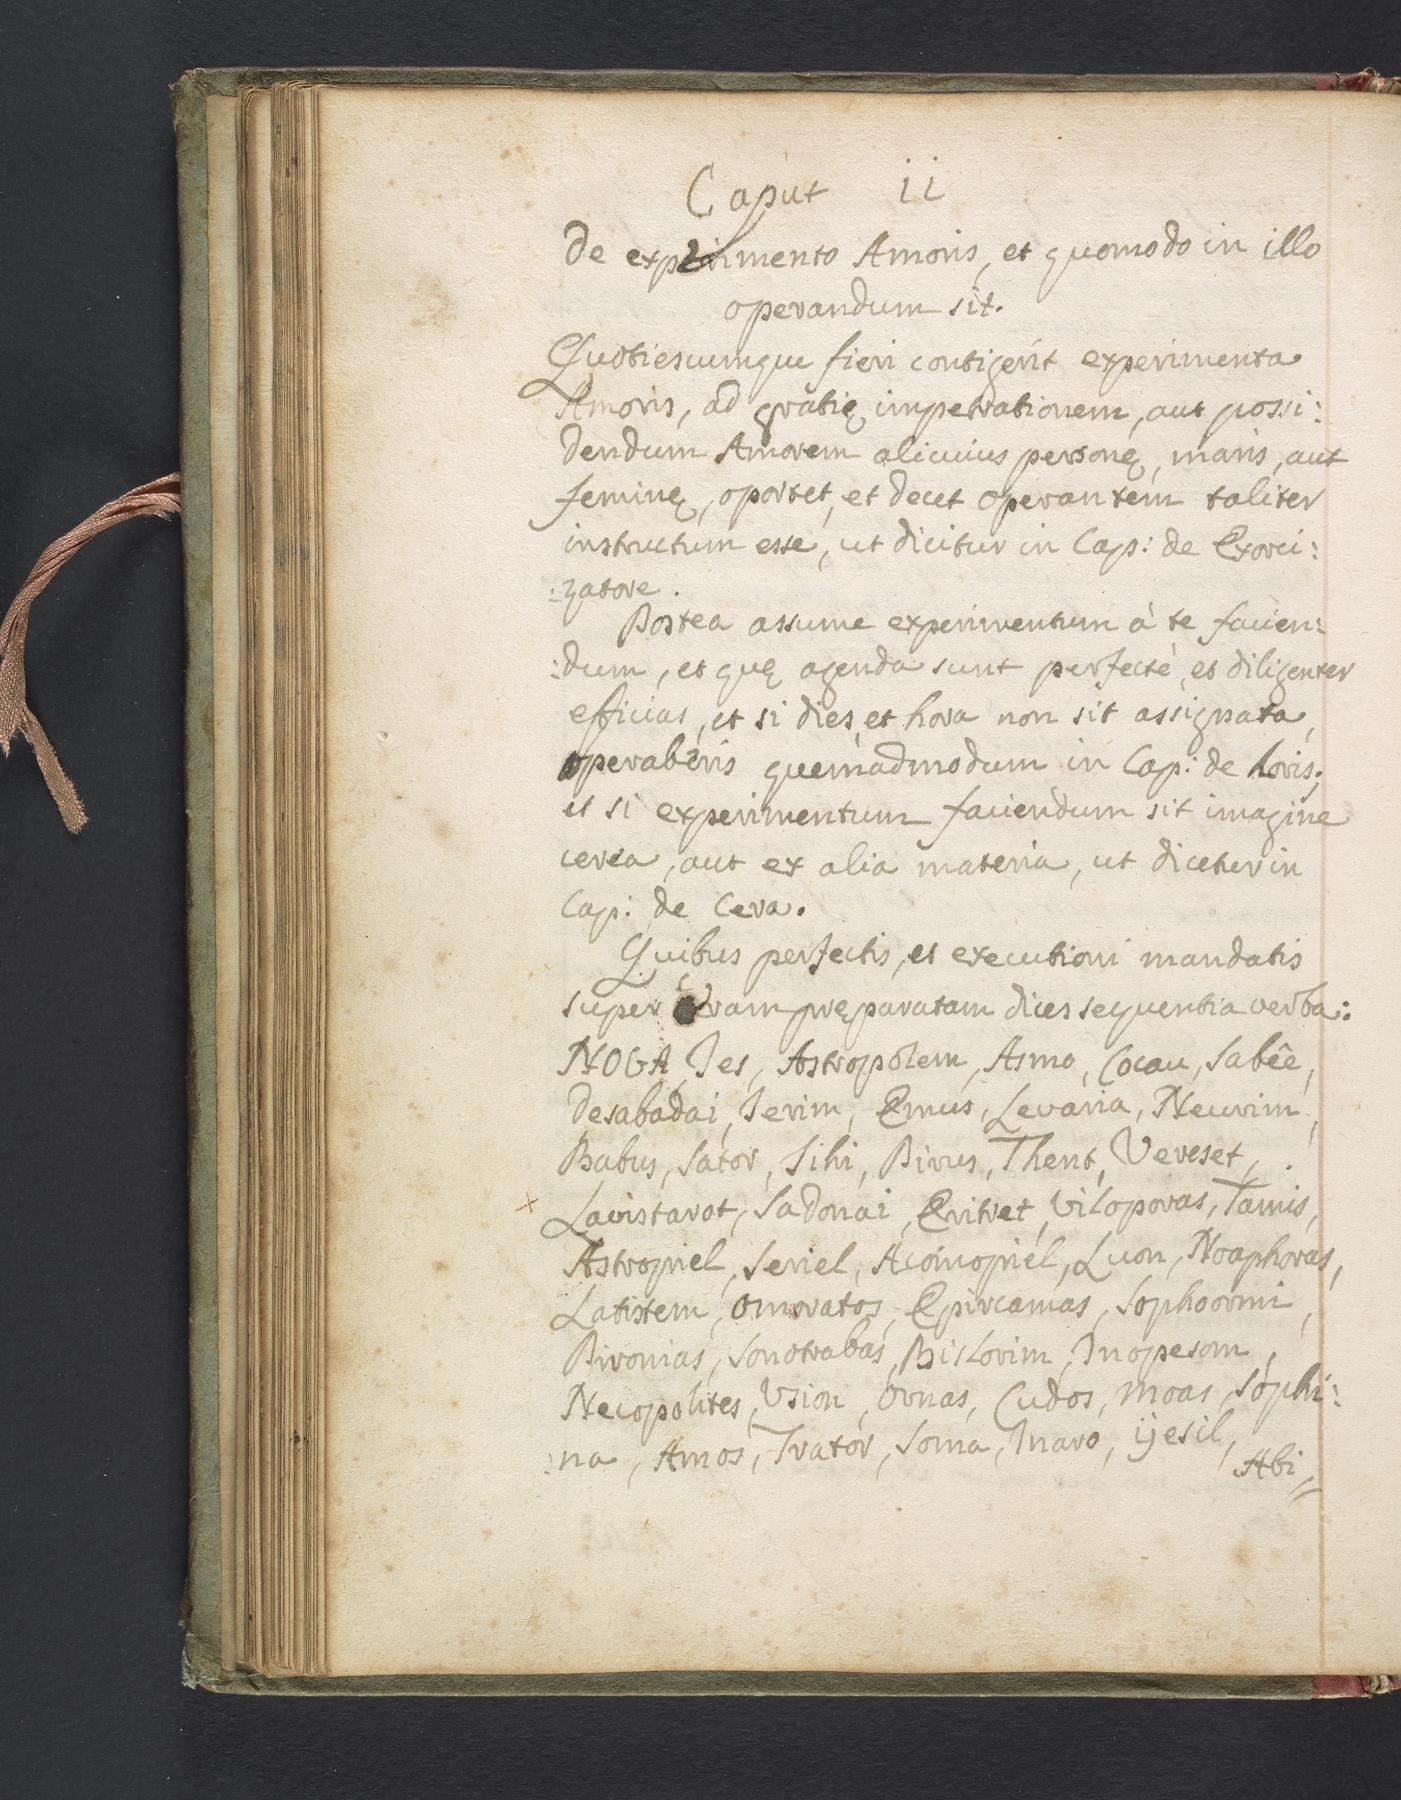 Caput ii
De experimento Amoris, et quomodo in illo
operandum sit.
Quotiescumque fieri contigerit experimenta
Amoris, ad gratię impetrationem, aut possi:
dendum Amorem alicuius personę, maris, aut
feminę, oportet, et decet operantem taliter
instructum esse, ut dicitur in Cap: de Exorci:
:zatore.
Postea assume experimentum à te facien:
:dum, et quę agenda sunt perfectè, et diligenter
efficias, et si dies, et hora non sit assignata,
operaberis quemadmodum in Cap: de horis;
et si experimentum faciendum sit imagine
cerea, aut ex alia materia, ut dicetur in
Cap: de Cera.
Quibus perfectis, et executioni mandatis
super Ceram pręparatam dices sequentia verba:
NOGA, Jes, Astropolem, Asmo, Cocau, Sabêe,
Desabadai, Jerim, Emus, Levaria, Neurim,
Babus, Sator, Sihi, Pirus, Thent, Vereset,
Lavistarot, Sadonai, Eritret, Viloporas, Tamis,
Astropiel, Seriel, Acomopiel, Luon, Noaphoras,
Latistem, Omoratos, Epircamas, Sophoormi,
Pironias, Sonotrabas, Bislorim, Inopesom,
Necopolites, Usion, Ornas, Cudos, Moas, Sophi:
:na, Amos, Trator, Soma, Inaro, ijesil,
Abi